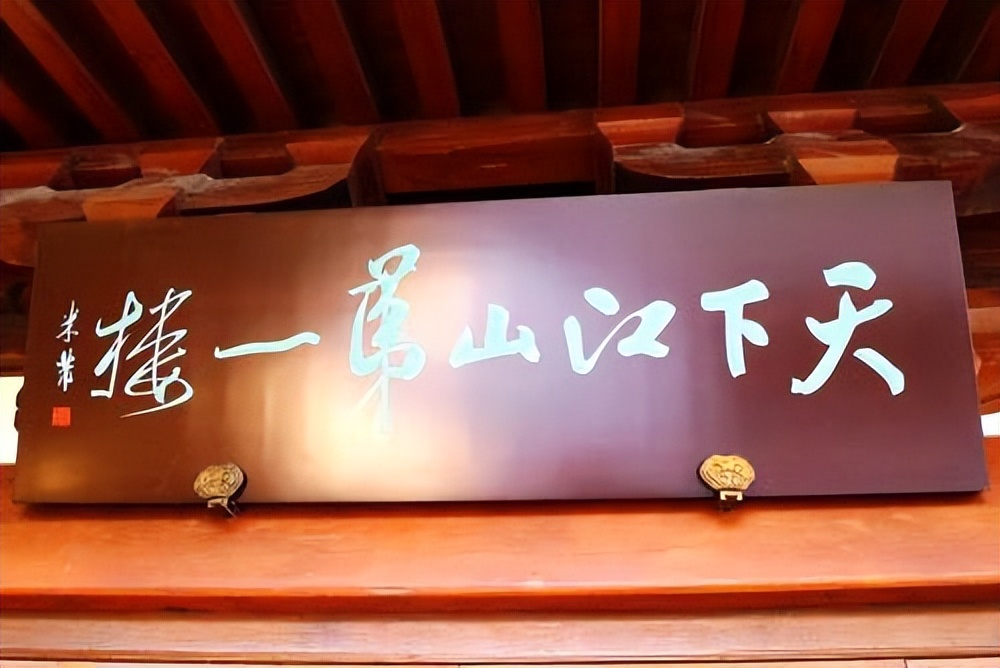 天下江山第一楼
米芾